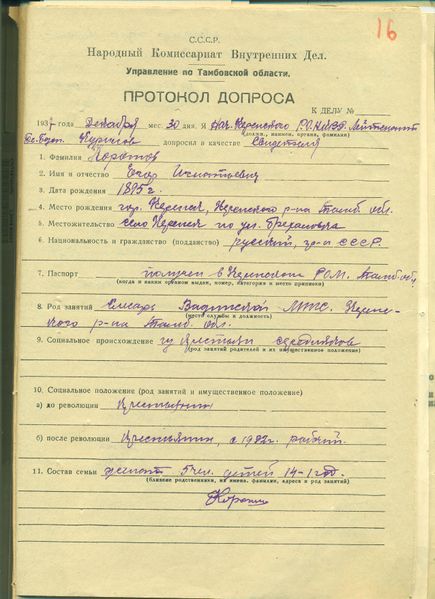 16
С.С.С.Р.
Народный Комиссариат Внутренних Дел.
Управление по Тамбовской области.
ПРОТОКОЛ ДОПРОСА
К ДЕЛУ №
1937 года Декабря мес. 30 дня. Я Нач. Керенского Р.О. НКВД Лейтенант
(должн., наимен. органа, фамилия)
Гос. Безоп. допросил в качестве Свидетеля
1. Фамилия
2. Имя и отчество Егор Игнатьевич
3. Дата рождения 1895 г.
4. Место рождения гор. Керенск, Керенского р-на Тамб. обл.
5. Местожительство село Керенск по ул.
6. Национальность и гражданство (подданство) русский, гр-н СССР
7. Паспорт получен в Керенском РОМ. Тамб. обл.
(когда и каким органом выдан, номер, категория и место приписки)
8. Род занятий Слесарь Вадинской МТС. Керенс-
(место службы и должность)
кого р-на Тамб. обл.
9. Социальное происхождение из крестьян середняков
(род занятий родителей и их имущественное положение)
10. Социальное положение (род занятий и имущественное положение)
а) до революции Крестьянин
б) после революции Крестьянин, с 1932 г. рабочий.
11. Состав семьи женат 5 чел. детей 14-1 год.
(близкие родственники, их имена, фамилии, адреса и род занятий)